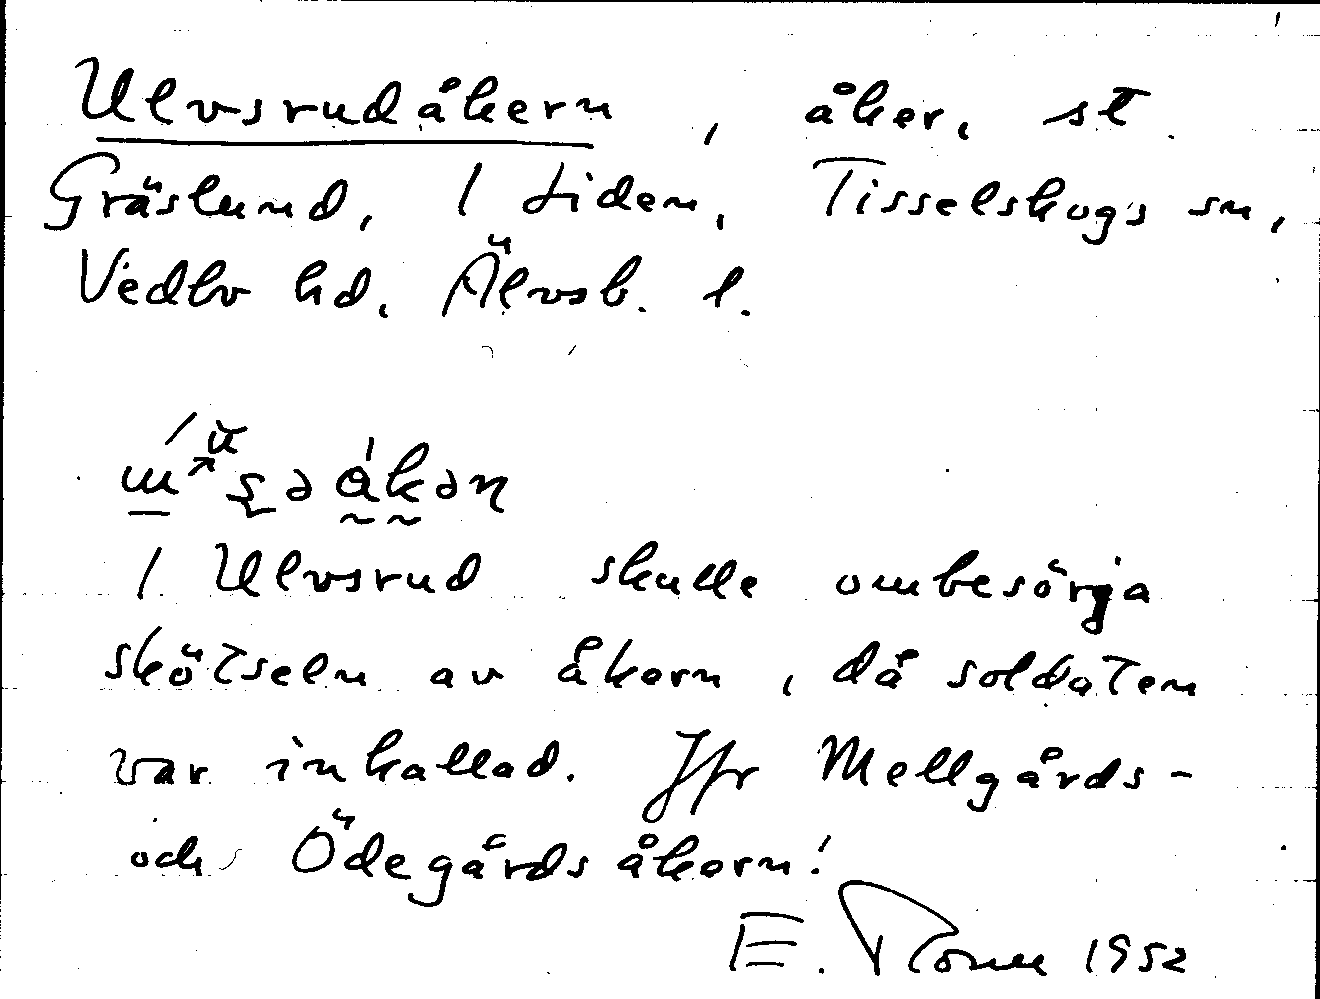 Ulvsrudåkern, åker, st.
Gräslund, 1 Liden, Tisselskogs sn,
Vedbo hd. Älvsb. l.
åkən
1 Ulvsrud skulle ombesörja
skötseln av åkern, då soldaten
var inkallad. Jfr Mellgårds-
och Ödegårdsåkern!
E. 1952